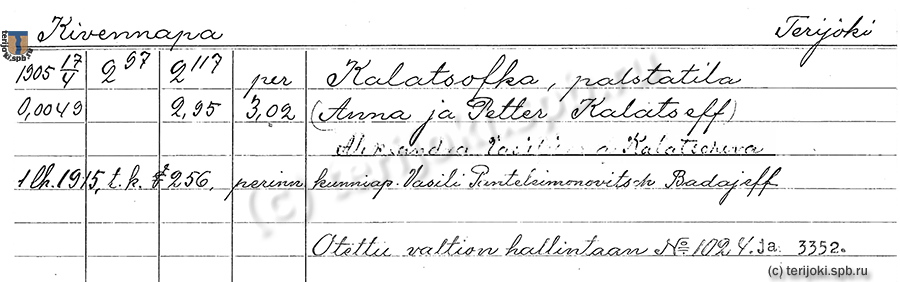 Kivennapa Terijoki
1905 17/4 2 97 2 117 per Kalatsofka, palstatila
0,0049 2,95 3,02 (Anna ja Petter Kalatseff)
Aleksandra Kalatscheva
1 lh. 1915, t.k. § 256, perinn kunniap. Vasili Panteleimonovitsch Badajeff
Otettu valtion hallintaan No 1024. ja 3352.
(c) terijoki.spb.ru
terijoki.spb.ru
(c) terijoki.spb.ru